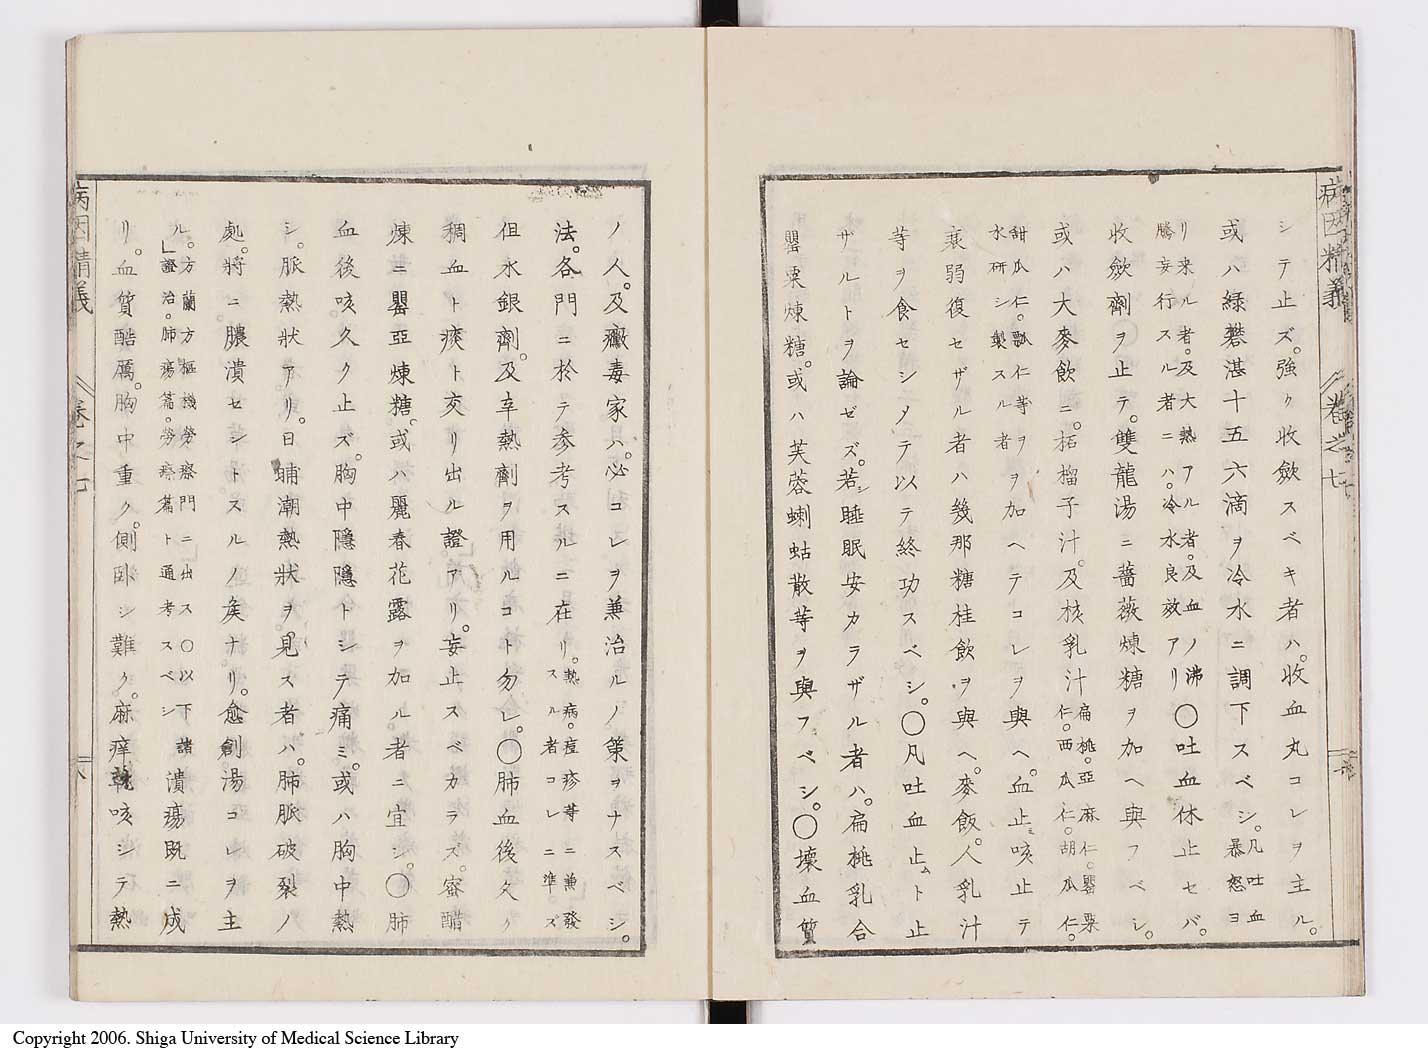 病因精義 卷之七
シテ止ズ。強ク收斂スベキ者ハ。收血丸コレヲ主ル。
或ハ綠礬湛十五六滴ヲ冷水ニ調下スベシ。凡吐血暴怒ヨ
リ来ル者。及大熱アル者。及血ノ沸騰妄行スル者ニハ。冷水良效アリ〇吐血休止セバ。
收斂劑ヲ止テ。雙龍湯ニ薔薇煉糖ヲ加ヘ與フベシ。
或ハ大麥飲ニ。柘榴子汁。及核乳汁扁桃。亞麻仁。罌粟仁。西瓜仁。胡瓜仁。
甜瓜仁。瓢仁等ヲ水研シ製スル者ヲ加ヘテコレヲ與ヘ。血止ミ咳止テ
衰弱復セザル者ハ幾那糖桂飲ヲ與ヘ。麥飯。人乳汁
等ヲ食セシメテ以テ終功スベシ。〇凡吐血止ムト止
ザルトヲ論ゼズ。若シ睡眠安カラザル者ハ。扁桃乳合
罌粟煉糖。或ハ芙蓉蝲蛄散等ヲ與フベシ。〇壞血質
ノ人。及黴毒家ハ。必コレヲ兼治ルノ策ヲナスベシ。
法。各門ニ於テ参考スルニ在リ。熱病。痘疹等ニ兼發スル者コレニ準ズ
但水銀劑。及辛熱劑ヲ用ルコト勿レ。〇肺血後久ク
稠血ト痰ト交リ出ル證アリ。妄止スベカラズ。蜜醋
煉ニ罌亞煉糖。或ハ麗春花露ヲ加ル。者ニ宜シ。〇肺
血後咳久ク止ズ。胸中隱隱トシテ痛ミ。或ハ胸中熱
シ。脈熱狀アリ。日晡潮熱狀ヲ見ス者ハ。肺脈破裂ノ
處。將ニ膿潰セントスルノ矦ナリ。愈創湯コレヲ主
ル。方蘭方樞機勞瘵門ニ出ス〇以下諸證治。肺瘍篇。勞瘵篇ト通考スベシ」潰瘍既ニ成
リ。血質酷厲。胸中重ク。側卧シ難ク。麻痒乾咳シテ熱
病因精義 卷之七 八
Copyright 2006. Shiga University of Medical Science Library